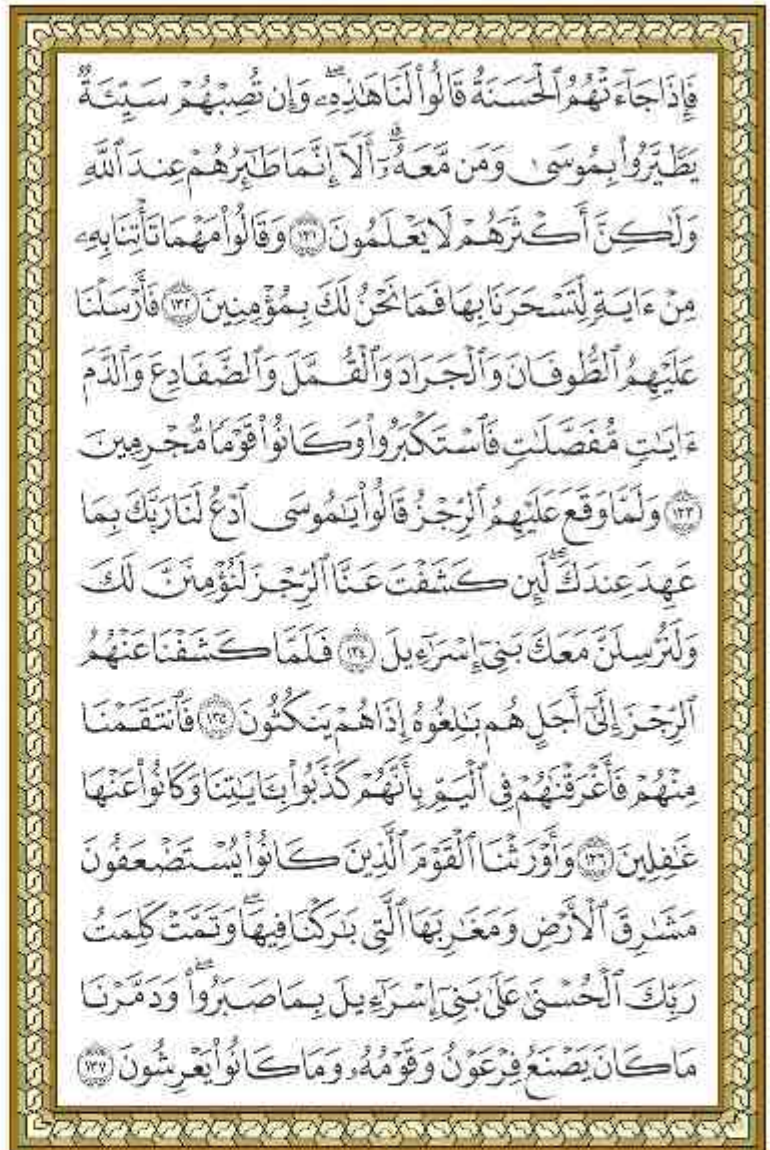 فَإِذَا جَآءَتْهُمُ ٱلْحَسَنَةُ قَالُوا۟ لَنَا هَـٰذِهِۦ ۖ وَإِن تُصِبْهُمْ سَيِّئَةٌ
يَطَّيَّرُوا۟ بِمُوسَىٰ وَمَن مَّعَهُۥٓ ۗ أَلَآ إِنَّمَا طَـٰٓئِرُهُمْ عِندَ ٱللَّهِ
وَلَـٰكِنَّ أَكْثَرَهُمْ لَا يَعْلَمُونَ ١٣١ وَقَالُوا۟ مَهْمَا تَأْتِنَا بِهِۦ
مِنْ ءَايَةٍ لِّتَسْحَرَنَا بِهَا فَمَا نَحْنُ لَكَ بِمُؤْمِنِينَ ١٣٢ فَأَرْسَلْنَا
عَلَيْهِمُ ٱلطُّوفَانَ وَٱلْجَرَادَ وَٱلْقُمَّلَ وَٱلضَّفَادِعَ وَٱلدَّمَ
ءَايَـٰتٍ مُّفَصَّلَـٰتٍ فَٱسْتَكْبَرُوا۟ وَكَانُوا۟ قَوْمًا مُّجْرِمِينَ
١٣٣ وَلَمَّا وَقَعَ عَلَيْهِمُ ٱلرِّجْزُ قَالُوا۟ يَـٰمُوسَى ٱدْعُ لَنَا رَبَّكَ بِمَا
عَهِدَ عِندَكَ ۖ لَئِن كَشَفْتَ عَنَّا ٱلرِّجْزَ لَنُؤْمِنَنَّ لَكَ
وَلَنُرْسِلَنَّ مَعَكَ بَنِىٓ إِسْرَٰٓءِيلَ ١٣٤ فَلَمَّا كَشَفْنَا عَنْهُمُ
ٱلرِّجْزَ إِلَىٰٓ أَجَلٍ هُم بَـٰلِغُوهُ إِذَا هُمْ يَنكُثُونَ ١٣٥ فَٱنتَقَمْنَا
مِنْهُمْ فَأَغْرَقْنَـٰهُمْ فِى ٱلْيَمِّ بِأَنَّهُمْ كَذَّبُوا۟ بِـَٔايَـٰتِنَا وَكَانُوا۟ عَنْهَا
غَـٰفِلِينَ ١٣٦ وَأَوْرَثْنَا ٱلْقَوْمَ ٱلَّذِينَ كَانُوا۟ يُسْتَضْعَفُونَ
مَشَـٰرِقَ ٱلْأَرْضِ وَمَغَـٰرِبَهَا ٱلَّتِى بَـٰرَكْنَا فِيهَا ۖ وَتَمَّتْ كَلِمَتُ
رَبِّكَ ٱلْحُسْنَىٰ عَلَىٰ بَنِىٓ إِسْرَٰٓءِيلَ بِمَا صَبَرُوا۟ ۖ وَدَمَّرْنَا
مَا كَانَ يَصْنَعُ فِرْعَوْنُ وَقَوْمُهُۥ وَمَا كَانُوا۟ يَعْرِشُونَ ١٣٧